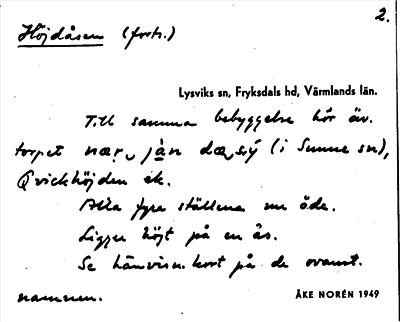 2.
Höjdåsen (forts.)
Lysviks sn, Fryksdals hd, Värmlands län.
Till samma bebyggelse hör äv.
torpet (i Sunne sn),
Qvickhöjden ek.
Alla fyra ställena nu öde.
Ligger högt på en ås.
Se hänvisn.kort på de ovannt.
namnen.
ÅKE NORÉN 1949